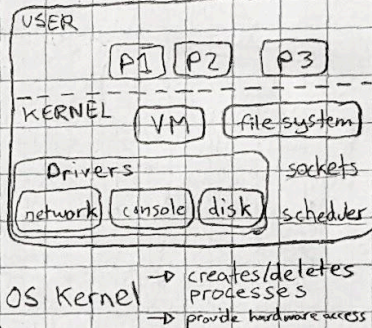 USER
P1 P2 P3
KERNEL
VM file system
Drivers sockets
network console disk scheduler
→ creates/deletes
OS Kernel processes
→ provide hardware access